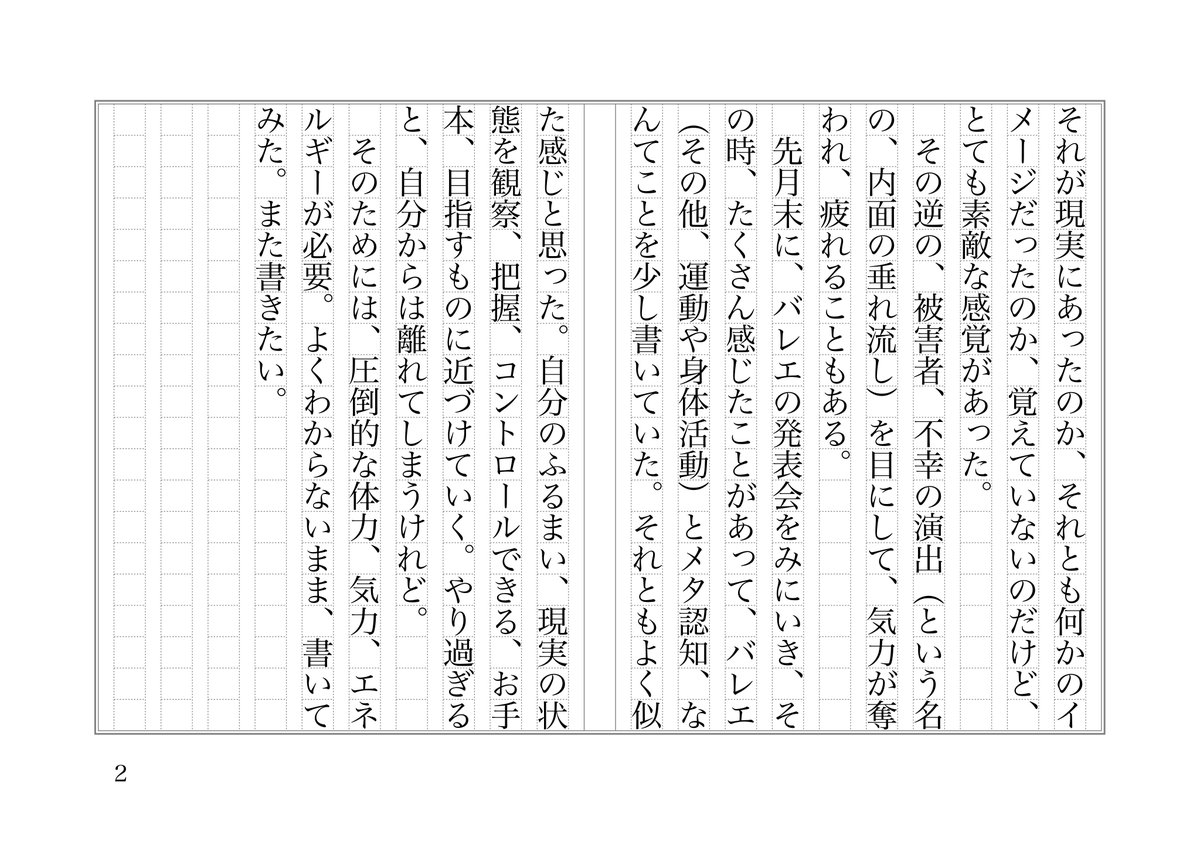 それが現実にあったのか、それとも何かのイ
メージだったのか、覚えていないのだけど、
とても素敵な感覚があった。
　その逆の、被害者、不幸の演出（という名
の、内面の垂れ流し）を目にして、気力が奪
われ、疲れることもある。
　先月末に、バレエの発表会をみにいき、そ
の時、たくさん感じたことがあって、バレエ
（その他、運動や身体活動）とメタ認知、な
んてことを少し書いていた。それともよく似
た感じと思った。自分のふるまい、現実の状
態を観察、把握、コントロールできる、お手
本、目指すものに近づけていく。やり過ぎる
と、自分からは離れてしまうけれど。
　そのためには、圧倒的な体力、気力、エネ
ルギーが必要。よくわからないまま、書いて
みた。また書きたい。
2